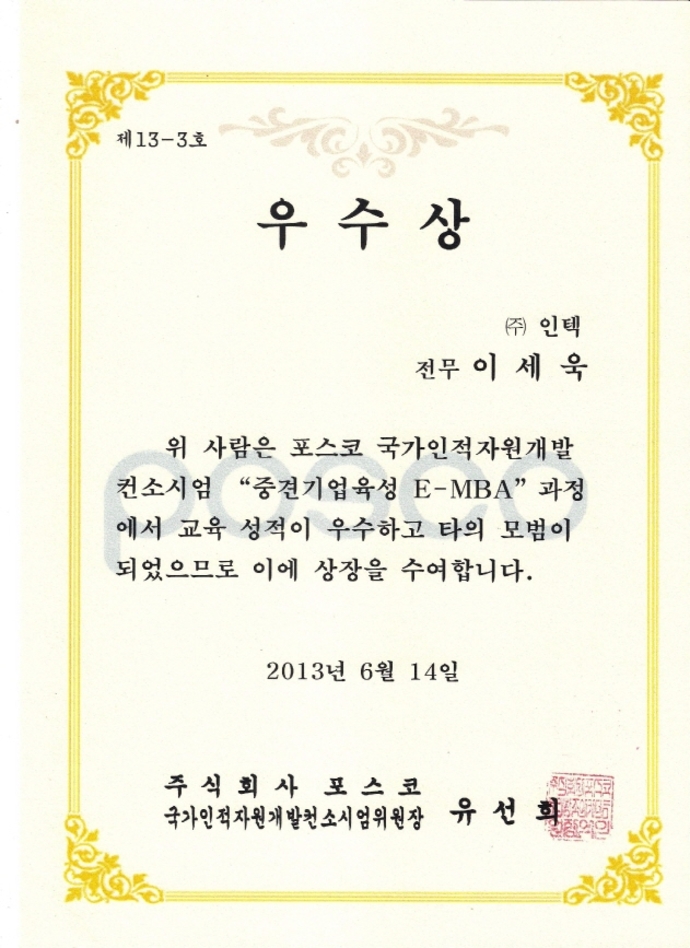 제13-3호
우 수 상
㈜ 인텍
전무 이 세 욱
위 사람은 포스코 국가인적자원개발
컨소시엄 “중견기업육성 E-MBA” 과정
에서 교육 성적이 우수하고 타의 모범이
되었으므로 이에 상장을 수여합니다.
posco
2013년 6월 14일
주 식 회 사 포 스 코
국가인적자원개발컨소시엄위원장 유 선 희